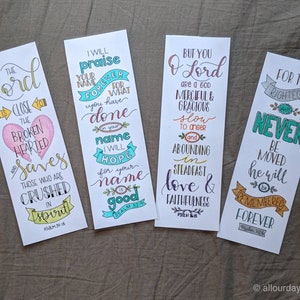 THE
Lord
IS
CLOSE
TO THE
BROKEN
HEARTED
AND
saves
THOSE WHO ARE
CRUSHED
IN
spirit
PSALM 34:18
I WILL
praise
YOUR NAME
FOREVER
FOR WHAT
you have
done
your
name
I WILL
HOPE
for your
name
is
good
PSALM 52:9
BUT YOU
O Lord
are a GOD
MERCIFUL &
GRACIOUS
slow
to anger
and
ABOUNDING
IN
STEADFAST
love &
FAITHFULNESS
FOR
RIGHTEOUS
NEVER
BE
MOVED
he will
BE
REMEMBERED
FOREVER
© allourday